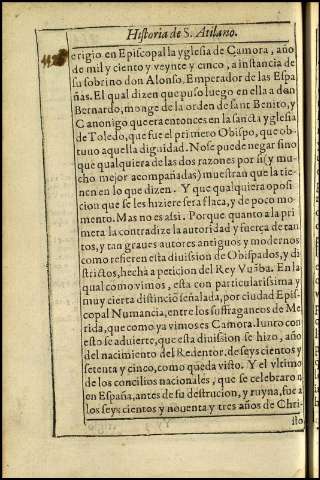 Historia de S. Atilano.
1125
erigio en Episcopal la yglesia de Çamora, año
de mil y ciento y veynte y cinco, a instancia de
su sobrino don Alonso, Emperador de las Espa
ñas. El qual dizen que puso luego en ella a don
Bernardo, monge de la orden de sant Benito, y
Canonigo que era entonces en la sancta yglesia
de Toledo, que fue el primero Obispo, que ob-
tuuo aquella dignidad. No se puede negar sino
que qualquiera de las dos razones por si (y mu-
cho mejor acompañadas) muestran que la tie-
nen en lo que dizen. Y que qualquiera oposi
cion que se les hiziere sera flaca, y de poco mo-
mento. Mas no es assi. Porque quanto a la pri
mera la contradize la autoridad y fuerça de tan
tos, y tan graues autores antiguos y modernos
como refieren esta diuision de Obispados, y di
strictos, hecha a peticion del Rey Vuāba. En la
qual como vimos, esta con particularissima y
muy cierta distinciō señalada, por ciudad Epis-
copal Numancia, entre los suffraganeos de Me
rida, que como ya vimos es Çamora. Iunto con
esto se aduierte, que esta diuision se hizo, año
del nacimiento del Redentor, de seys cientos y
setenta y cinco, como queda visto. Y el vltimo
de los concilios nacionales, que se celebraro n
en España, antes de su destrucion, y ruyna, fue a
los seys cientos y nouenta y tres años de Chri-
sto